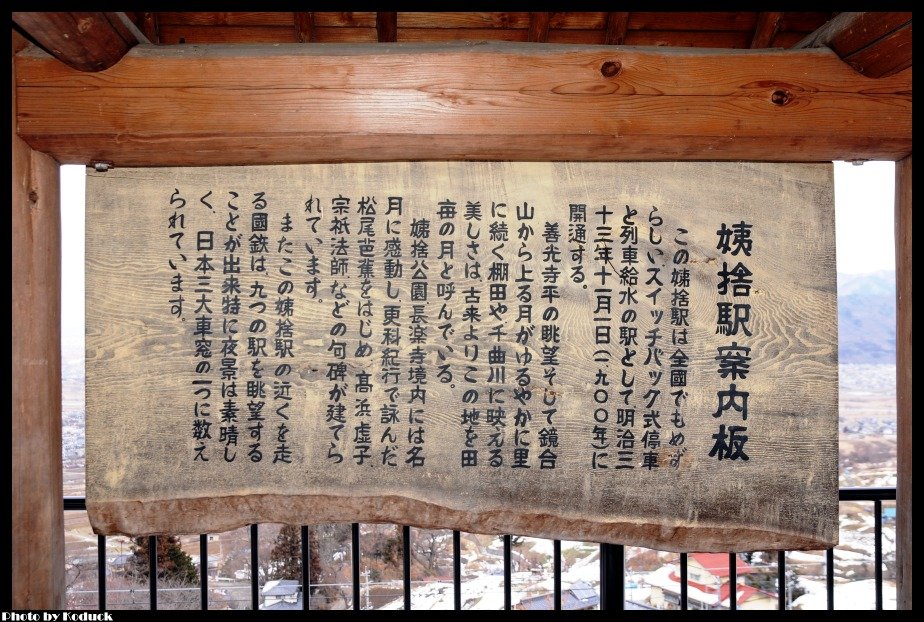 姨捨駅案内板
この姨捨駅は全國でもめず
らしいスイッチバック式停車
と列車給水の駅として明治三
十三年十一月一日(一九〇〇年)に
開通する。
善光寺平の眺望そして鏡台
山から上る月がゆるやかに里
に続く棚田や千曲川に映える
美しさは古来よりこの地を田
毎の月と呼んでいる。
姨捨公園、長楽寺境内には名
月に感動し更科紀行で詠んだ
松尾芭蕉をはじめ、高浜虚子
宗祇法師、などの句碑が建てら
れています。
またこの姨捨駅の近くを走
る國鉄は、九つの駅を眺望する
ことが出来特に夜景は素晴し
く、日本三大車窓の一つに数え
られています。
Photo by Koduck